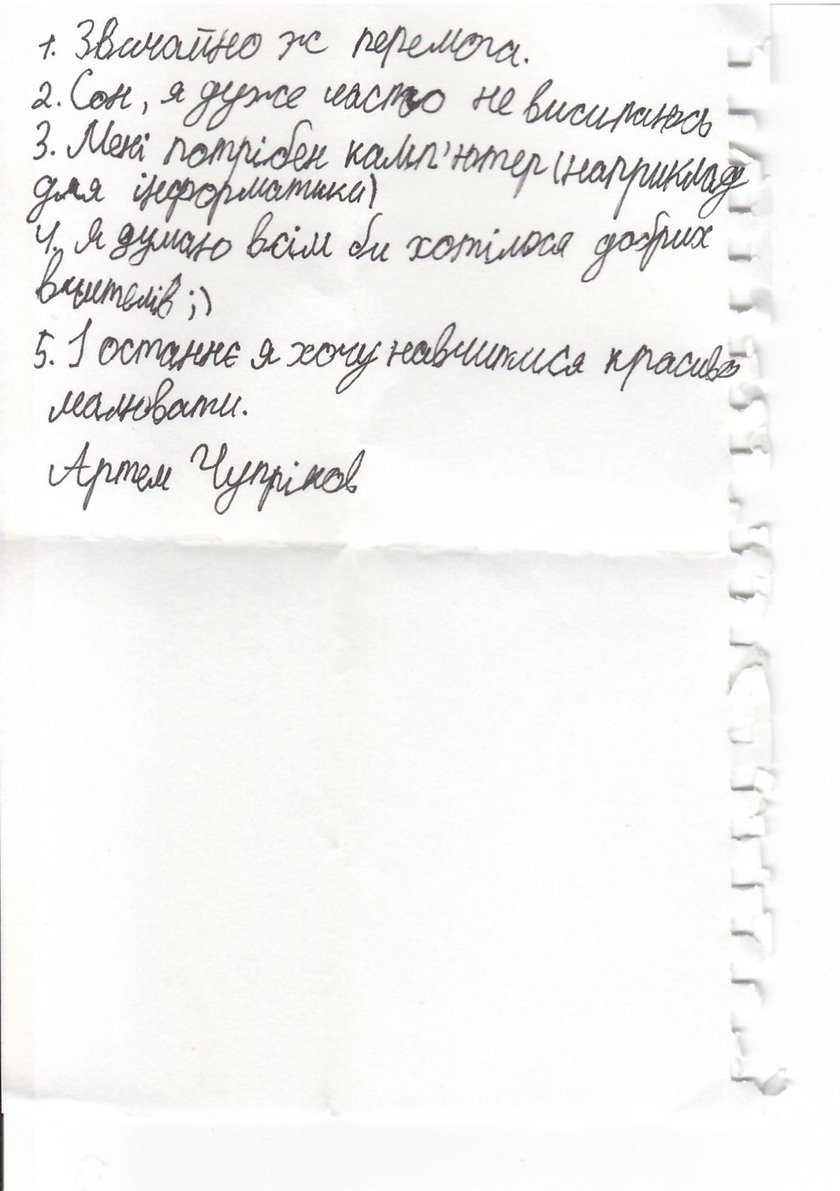 1. Звичайно ж перемога.
2. Сон, я дуже часто не висипаюсь
3. Мені потрібен камп'ютер (наприклад
для інформатики)
4. Я думаю всім би хотілося добрих
вчителів ;)
5. І останнє я хочу навчитися красиво
малювати.
Артем Чупріков